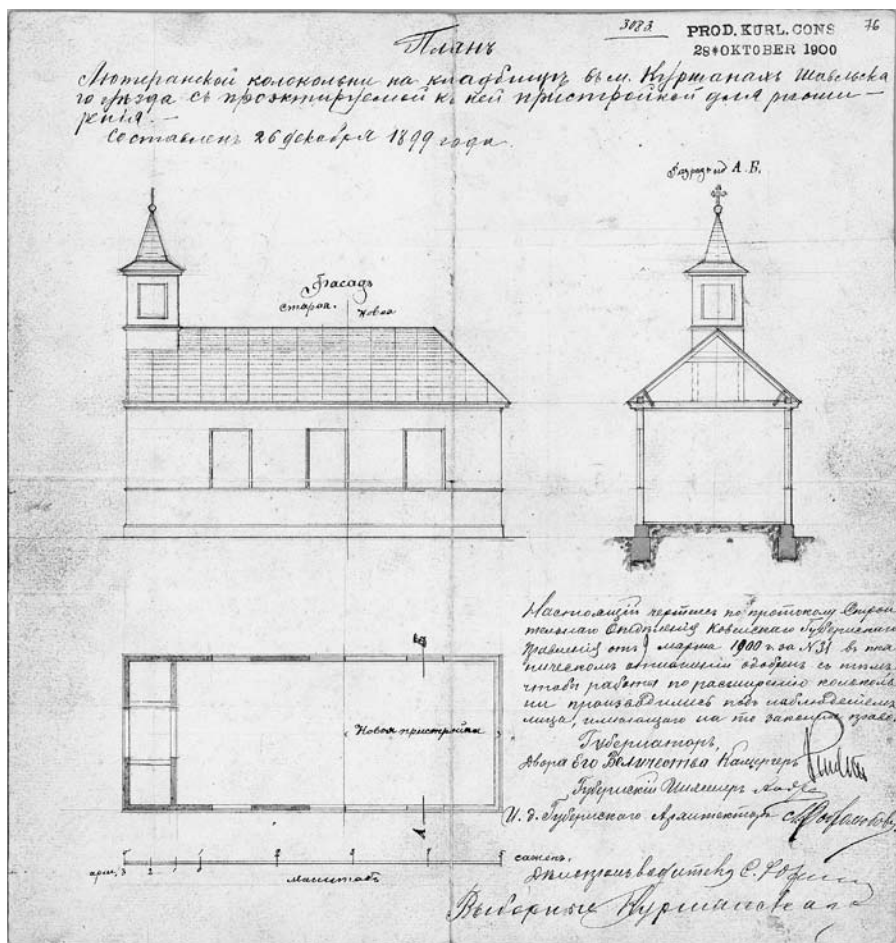 3083
PROD. KURL. CONS
28 OKTOBER 1900
76
Планъ
Лютеранской колокольни на кладбищѣ въ м. Куршанахъ Шавельска
го уѣзда съ проэктируемой къ ней пристройкой для расши-
ренія.
Составленъ 26 декабря 1899 года.
Разрѣзъ по А.Б.
Фасадъ
старая. новая
Настоящій чертежъ по протоколу Строи
тельнаго Отдѣленія Ковенскаго Губернскаго
Правленія отъ 9 марта 1900 г. за N31 въ тех
ническомъ отношеніи одобренъ съ тѣмъ,
чтобы работы по расширенію колоколь
ни производились подъ наблюденіемъ
лица, имѣющаго на то законное право.
Губернаторъ,
Двора Его Величества Камергеръ
Губернскій Инженеръ
И. д. Губернскаго Архитектора
Б
Новая пристройка
А
арш. 3 2 1
сажень.
масштабъ
Дѣлопроизводитель С.
Выборные